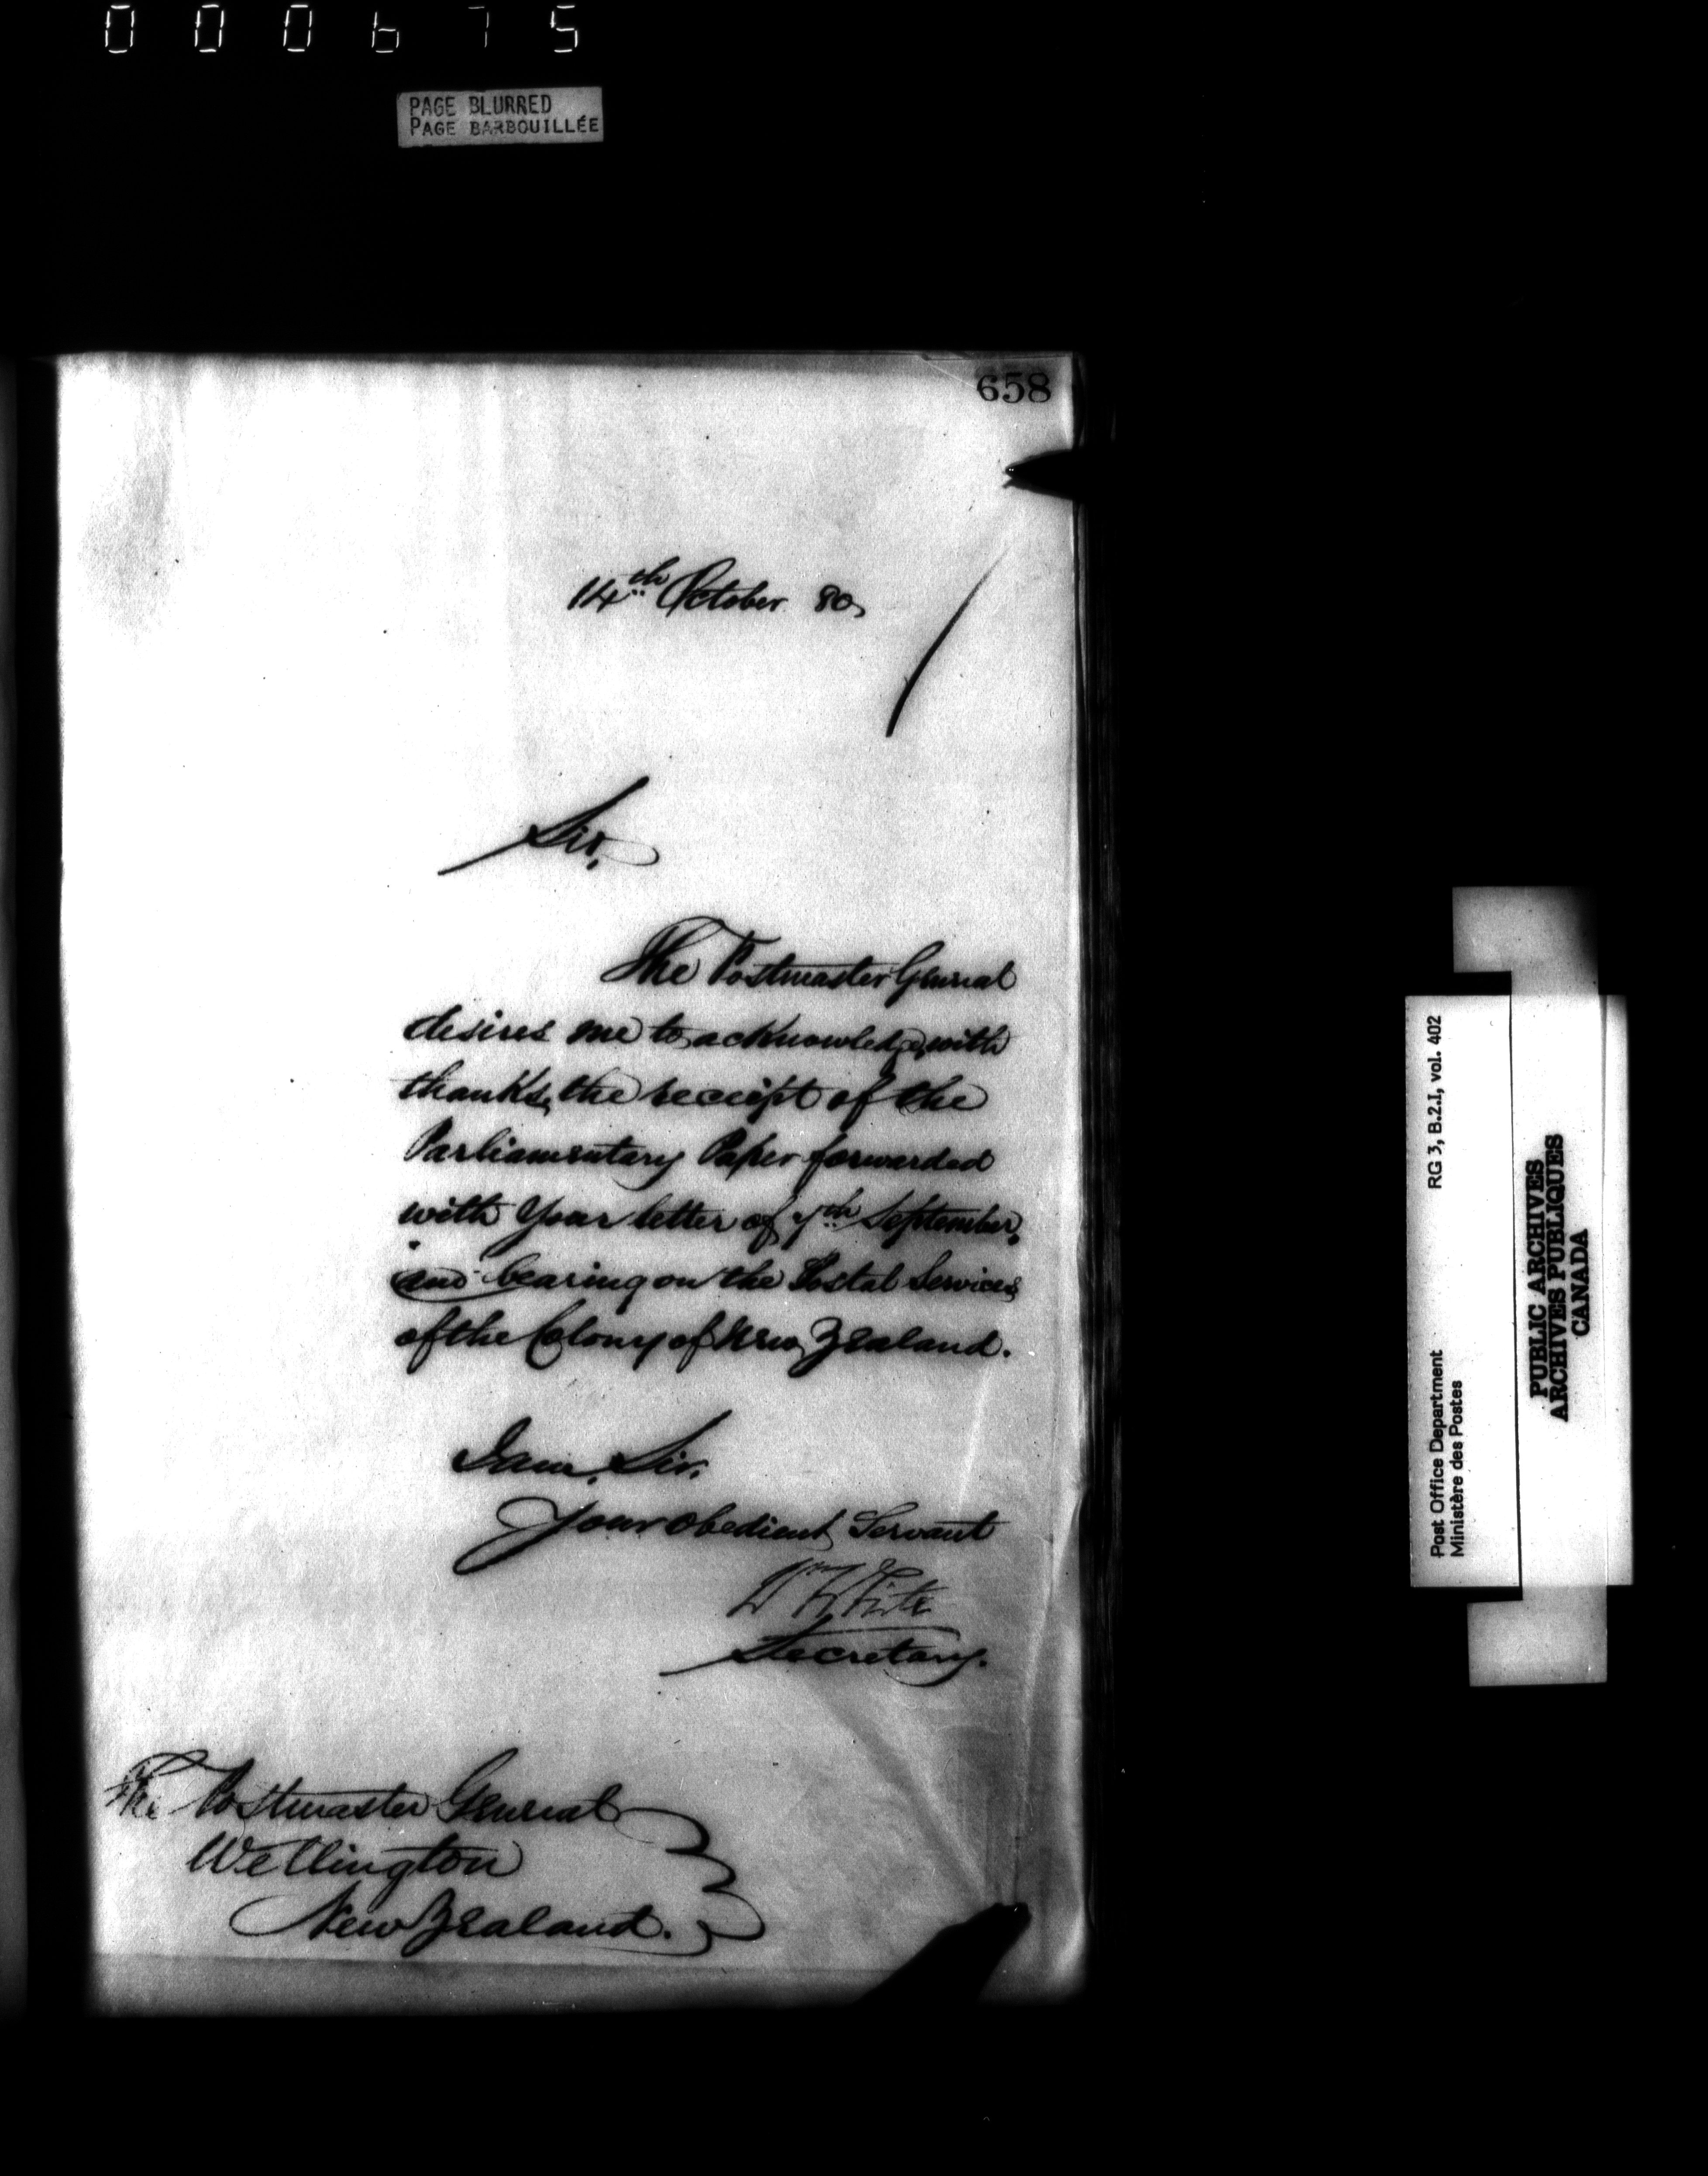 000675
PAGE BLURRED
PAGE BARBOUILLÉE
658
14th October 80,
Sir,
The Postmaster General
desires me to acknowledge, with
thanks, the receipt of the
Parliamentary Paper forwarded
with your letter of 7th September,
and bearing on the Postal Services
of the Colony of New Zealand.
I am, Sir,
Your obedient Servant
White
Secretary.
The Postmaster General
Wellington
New Zealand.
Post Office Department
Ministère des Postes
RG 3, B.2.I, vol. 402
PUBLIC ARCHIVES
ARCHIVES PUBLIQUES
CANADA